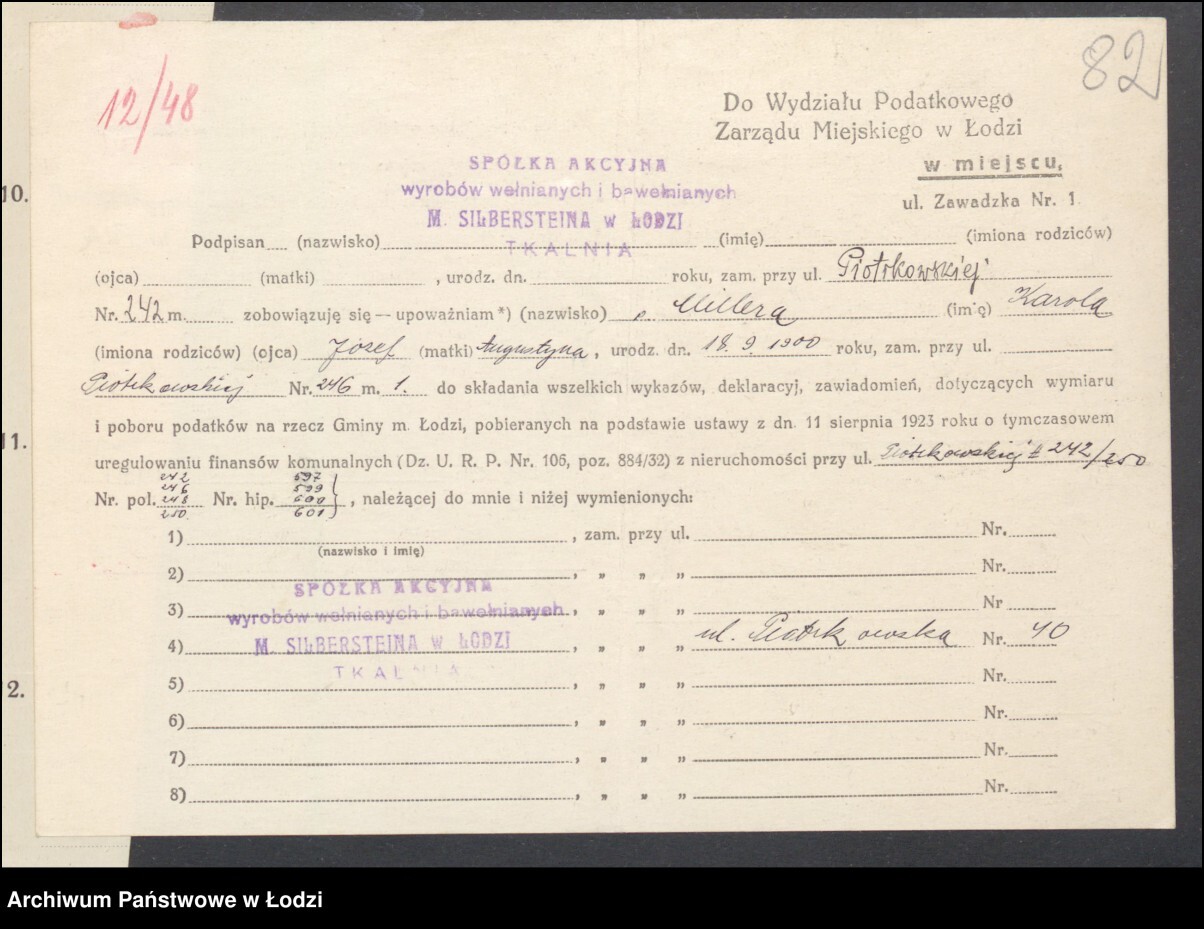 82
12/48
Do Wydziału Podatkowego
Zarządu Miejskiego w Łodzi
w miejscu,
ul. Zawadzka Nr. 1
10.
SPÓŁKA AKCYJNA
wyrobów wełnianych i bawełnianych
M. SILBERSTEINA w ŁODZI
TKALNIA
Podpisan (nazwisko) (imię) (imiona rodziców)
(ojca) (matki) , urodz. dn. roku, zam. przy ul. Piotrkowskiej
Nr. 242 m. zobowiązuję się — upoważniam *) (nazwisko) Millera (imię) Karola
(imiona rodziców) (ojca) Józef (matki) Augustyna, urodz. dn. 18.9.1900 roku, zam. przy ul.
Piotrkowskiej Nr. 246 m. 1. do składania wszelkich wykazów, deklaracyj, zawiadomień, dotyczących wymiaru
11.
i poboru podatków na rzecz Gminy m. Łodzi, pobieranych na podstawie ustawy z dn. 11 sierpnia 1923 roku o tymczasowem
uregulowaniu finansów komunalnych (Dz. U. R. P. Nr. 106, poz. 884/32) z nieruchomości przy ul. Piotrkowskiej 242/250
Nr. pol. 242 246 248 250 Nr. hip. 597 599 600 601 } , należącej do mnie i niżej wymienionych:
1) , zam. przy ul. Nr.
(nazwisko i imię)
2) , „ „ „ Nr.
SPÓŁKA AKCYJNA
3) , „ „ „ Nr
wyrobów wełnianych i bawełnianych
4) , „ „ „ ul. Piotrkowska Nr. 40
M. SILBERSTEINA w ŁODZI
TKALNIA
5) , „ „ „ Nr.
2.
6) , „ „ „ Nr.
7) , „ „ „ Nr.
8) , „ „ „ Nr.
Archiwum Państwowe w Łodzi